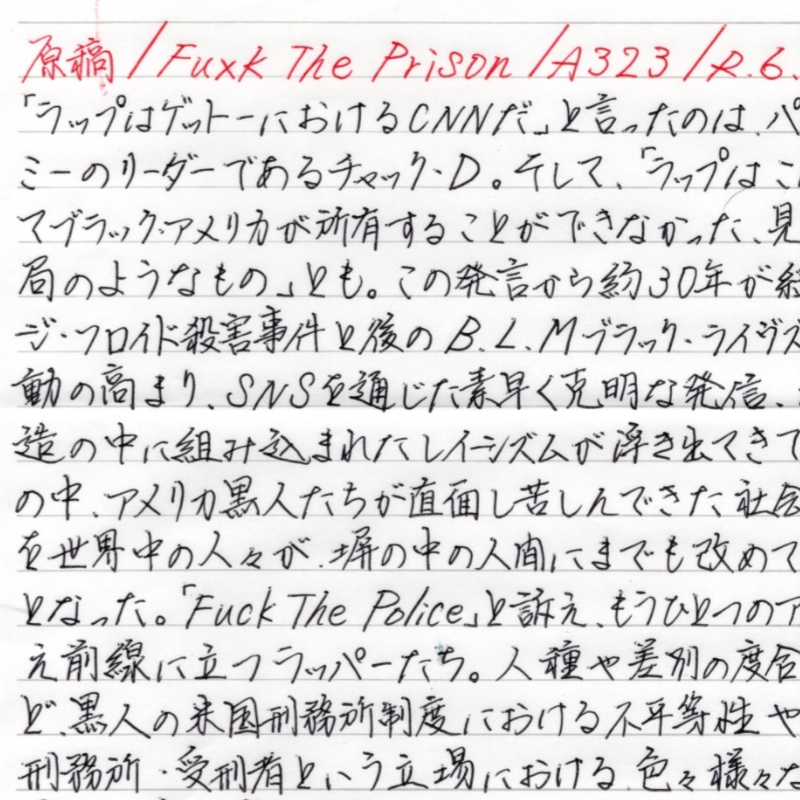 原稿/Fuxk The Prison/A323/R.6.
「ラップはゲットーにおけるCNNだ」と言ったのは、パ
ミーのリーダーであるチャック・D。そして、「ラップはこ
マブラック・アメリカが所有することができなかった、見
局のようなもの」とも。この発言から約30年が経
ジ・フロイド殺害事件と後のB.L.Mブラック・ライヴズ
動の高まり、SNSを通じた素早く克明な発信、
造の中に組み込まれたレイシズムが浮き出てきて
の中、アメリカ黒人たちが直面し苦しんできた社会
を世界中の人々が、塀の中の人間にまでも改めて
となった。「Fuck The Police」と訴え、もうひとつのア
え前線に立つラッパーたち。人種や差別の度合
ど、黒人の米国刑務所制度における不平等性や
刑務所・受刑者という立場における、色々様々な